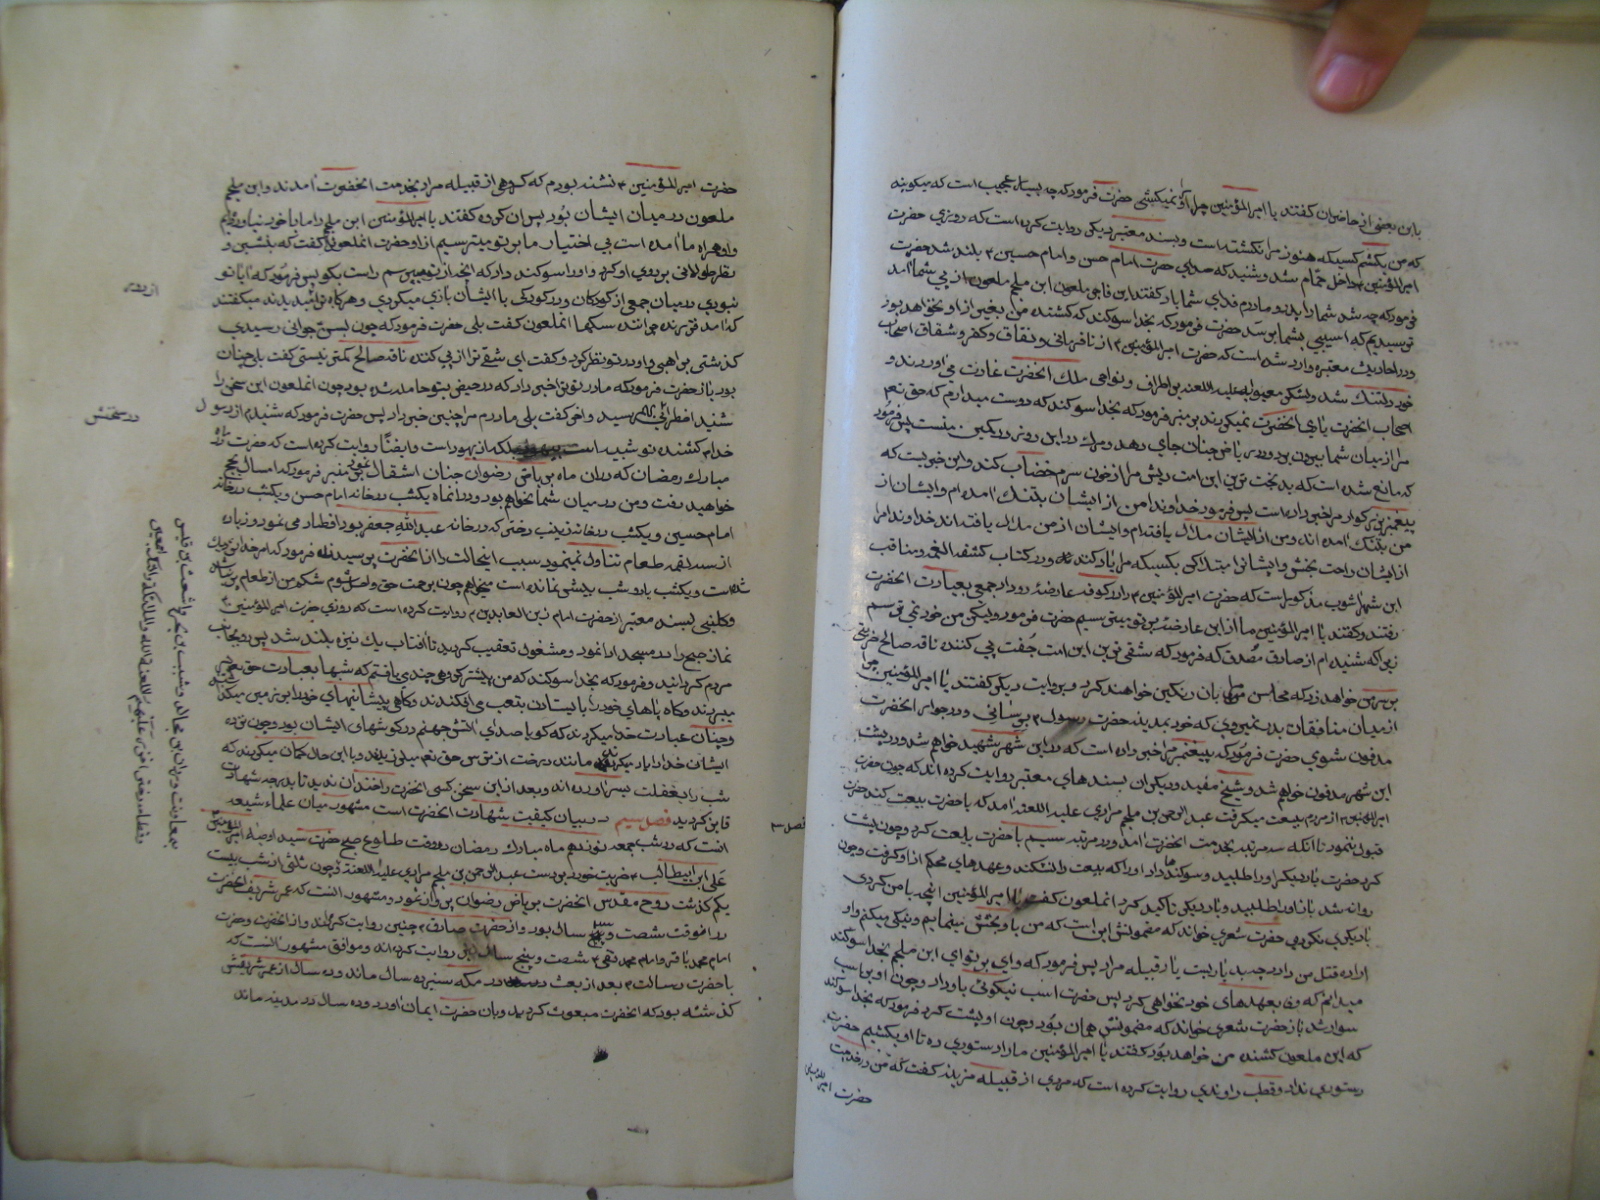 با این بعضی از حاضران کفتند یا امیر المؤمنین چرا او را نمیکشی حضرت فرمود که چه بسیار عجیب است که میکوئید
که من بکشم کسیکه هنوز مرا نکشته است و بسند معتبر دیکر روایت کرده است که روزی حضرت
امیر المؤمنین داخل حمّام شد و شنید که صدای حضرت امام حسن و امام حسین بلند شد حضرت
فرمود که چه شد شما را پدر و مادرم فدای شما باد کفتند این فاجر ملعون ابن ملجم ملعون از پی شما آمد
ترسیدیم که آسیبی بشما برسد حضرت فرمود که بخدا سوکند که کشنده من بغیر از او نخواهد بود
و در احادیث معتبره وارد شده است که حضرت امیر المؤمنین از نافرمانی و نفاق و کفر و شقاق اصحاب
خود دلتنک شد و لشکر معویه علیه اللعنه بر اطراف و نواحی ملک آنحضرت غارت می آوردند و
اصحاب آنحضرت یاری آنحضرت نمیکردند بر منبر فرمود که بخدا سوکند که دوست میدارم که حق تعم
مرا از میان شما بیرون برد و در ریاض جنان جای دهد و مرک در این زودی در کمین منست پس فرمود
که مانع شده است که بدبخت ترین این امت ریش مرا از خون سرم خضاب کند و این خبریست که
پیغمبر بزرکوار مرا خبر داده است پس فرمود خداوندا من از ایشان بتنک آمده ام و ایشان از
من بتنک آمده اند و من از ایشان ملال یافته ام و ایشان از من ملال یافته اند خداوندا مرا
از ایشان راحت بخش و ایشانرا مبتلا کن بکسیکه مرا یاد کنند و در کتاب کشف الغمه و مناقب
ابن شهر آشوب مذکور است که حضرت امیر المؤمنین را در کوفه عارضه رو داد جمعی بعیادت آنحضرت
رفتند و کفتند یا امیر المؤمنین ما از این عارضه بر تو میترسیم حضرت فرمود ولیکن من خود نمی ترسم
زیرا که شنیده ام از صادق مصدق که فرمود که شقی ترین این امت جفت پی کننده ناقه صالح ضربتی
بر سر من خواهد زد که محاسن مرا بان رنکین خواهند کرد و بروایت دیکر کفتند یا امیر المؤمنین چرا
از میان منافقان بدر نمیروی که خود بمدینه حضرت رسول برسانی و در جوار آنحضرت
مدفون شوی حضرت فرمود که پیغمبر مرا خبر داده است که در این شهر شهید خواهم شد و در پشت
این شهر مدفون خواهم شد و شیخ مفید و دیکران بسندهای معتبر روایت کرده اند که چون حضرت
امیر المؤمنین از مردم بیعت میکرفت عبد الرحمن بن ملجم مرادی علیه اللعنه آمد که با حضرت بیعت کند حضرت
قبول ننمود تا آنکه سه مرتبه بخدمت آنحضرت آمد و در مرتبه سیم با حضرت بیعت کرد و چون پشت
کرد حضرت بار دیکر او را طلبید و سوکند داد او را که بیعت را نشکند و عهدهای محکم از او کرفت و چون
روانه شد باز او را طلبید و بار دیکر تأکید کرد آنملعون کفت یا امیر المؤمنین آنچه با من کردی
با دیکری نکردی حضرت شعری خواند که مضمونش این است که من با او بخشش مینمایم و نیکی میکنم و او
اراده قتل من دارد چه بد یاریست یار قبیله مراد پس فرمود که وای بر تو ای ابن ملجم بخدا سوکند
میدانم که وفا بعهدهای خود نخواهی کرد پس حضرت اسب نیکوئی باو داد و چون او بر اسب
سوار شد باز حضرت شعری خواند که مضمونش همان بود و چون او پشت کرد فرمود که بخدا سوکند
که این ملعون کشنده من خواهد بود کفتند یا امیر المؤمنین ما را دستوری ده تا او بکشیم حضرت
دستوری نداد و قطب راوندی روایت کرده است که مردی از قبیله مزینه کفت که من در خدمت
حضرت امیر المؤمنین
حضرت امیر المؤمنین نشسته بودم که کروهی از قبیله مراد بخدمت آنحضرت آمدند و ابن ملجم
ملعون در میان ایشان بود پس آن کروه کفتند یا امیر المؤمنین ابن ملجم را ما با خود نیاوردیم
و او همراه ما آمده است بی اختیار ما بر تو میترسیم از او حضرت آنملعون را کفت که بنشین و
نظر طولانی بر روی او کرد و او را سوکند داد که آنچه از تو میپرسم راست بکو پس فرمود که آیا تو
نبودی در میان جمعی از کودکان و در کودکی با ایشان بازی میکردی و هرکاه ترا میدیدند میکفتند
که آمد فرزند چراننده سکها آنملعون کفت بلی حضرت فرمود که چون بسن جوانی رسیدی
کذشتی براهبی و او در تو نظر کرد و کفت ای شقی تر از پی کننده ناقه صالح کمتر نیستی کفت بلی چنان
بود باز حضرت فرمود که مادر تو ترا خبر داد که در حیض بتو حامله شده بود چون آنملعون این سخن را
شنید اضطرابی باو رسید و آخر کفت بلی مادرم مرا چنین خبر داد پس حضرت فرمود که شنیدم از رسول
خدا که کشنده تو شبیه است بیهود بلکه از یهود است و ایضا روایت کرده است که حضرت در ماه
مبارک رمضان که در آن ماه بریاض رضوان جنان انتقال نمود بر منبر فرمود که امسال بحج
خواهید رفت و من در میان شما نخواهم بود و در آنماه یکشب در خانه امام حسن و یکشب در خانه
امام حسین و یکشب در خانه زینب دختر که در خانه عبد الله جعفر بود افطار می نمود و زیاده
از سه لقمه طعام تناول نمینمود سبب اینحالت را از آنحضرت پرسیدند فرمود که امر خدا نزدیک
شده است و یکشب یا دو شب بیشتر نمانده است میخواهم چون برحمت حق واصل شوم شکم من از طعام پر نباشد
و کلینی بسند معتبر از حضرت امام زین العابدین روایت کرده است که روزی حضرت امیر المؤمنین
نماز صبح را در مسجد ادا نمود و مشغول تعقیب کردید تا آفتاب یک نیزه بلند شد پس رو بجانب
مردم کردانید و فرمود که بخدا سوکند که من پیشتر کروهی چندی یافتم که شبها بعبادت حق بروز
میبردند و کاه پاهای خود را بایستادن بتعب می افکندند و کاهی پیشانیهای خود را بر زمین میکذاشتند
و چنان عبادت خدا میکردند که کویا صدای آتش جهنم در کوشهای ایشان بود و چون نزد
ایشان خدا را یاد میکردند مانند درخت از ترس حق تعم میلرزیدند و با این حال کمان میکردند که
شب را بغفلت بسر آورده اند و بعد از این سخن کسی آنحضرت را خندان ندید تا بدرجه شهادت
فایز کردید فصل سیم در بیان کیفیت شهادت آنحضرت است مشهور میان علماء شیعه
آنست که در شب جمعه نوزدهم ماه مبارک رمضان در وقت طلوع صبح حضرت سید اوصیا امیر المؤمنین
علی ابن ابیطالب ضربت خورد بدست عبد الرحمن بن ملجم مرادی علیه اللعنة و چون ثلثی از شب بیست
یکم کذشت روح مقدس آنحضرت بریاض رضوان پرواز نمود و مشهور آنست که عمر شریف آنحضرت
در آنوقت شصت و سه سال بود و از حضرت صادق چنین روایت کرده اند و از آنحضرت و حضرت
امام محمد باقر و امام محمد تقی شصت و پنج سال نیز روایت کرده اند و موافق مشهور آنست که
با حضرت رسالت بعد از بعثت در مکه سیزده سال ماند و ده سال از عمر شریفش
کذشته بود که آنحضرت مبعوث کردید و بان حضرت ایمان آورد و ده سال در مدینه ماند
فصل سه
از روی
در سختش
بمعاونت وردان بن مجالد و شبیب بن بجره و اشعث بن قیس